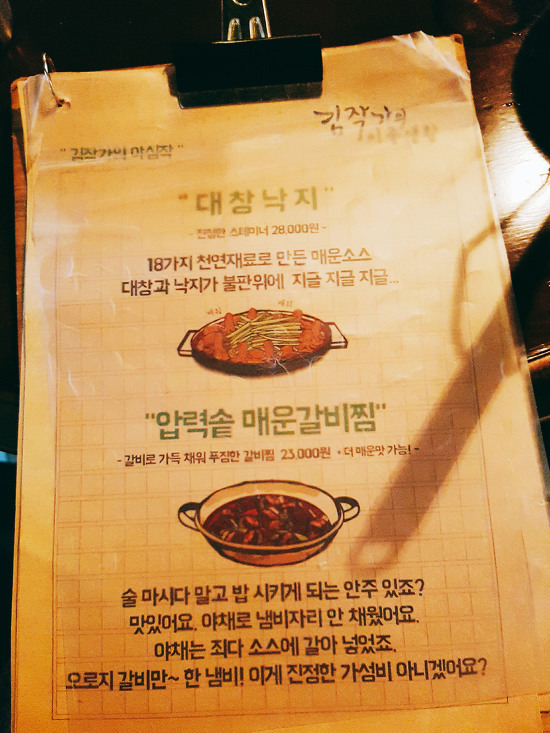 김작가의
이중생활
" 김작가의 야심작 "
" 대창낙지 "
- 진정한 스테미너 28,000원 -
18가지 천연재료로 만든 매운소스
대창과 낙지가 불판위에 지글 지글 지글...
"압력솥 매운갈비찜"
- 갈비로 가득 채워 푸짐한 갈비찜 23,000원 • 더 매운맛 가능! -
술 마시다 말고 밥 시키게 되는 안주 있죠?
맛있어요. 야채로 냄비자리 안 채웠어요.
야채는 죄다 소스에 갈아 넣었죠.
오로지 갈비만~ 한 냄비! 이게 진정한 가성비 아니겠어요?